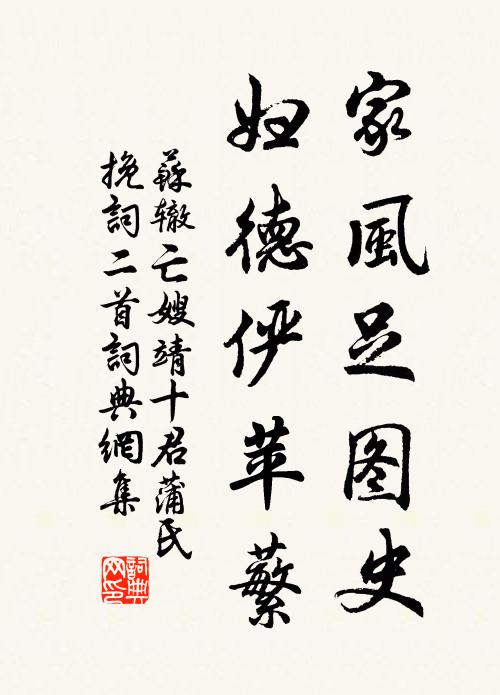 家風足图史
妇德俨苹蘩
蘇辙亡嫂靖十君蒲氏
挽詞二首詞典網集
詞典
网印